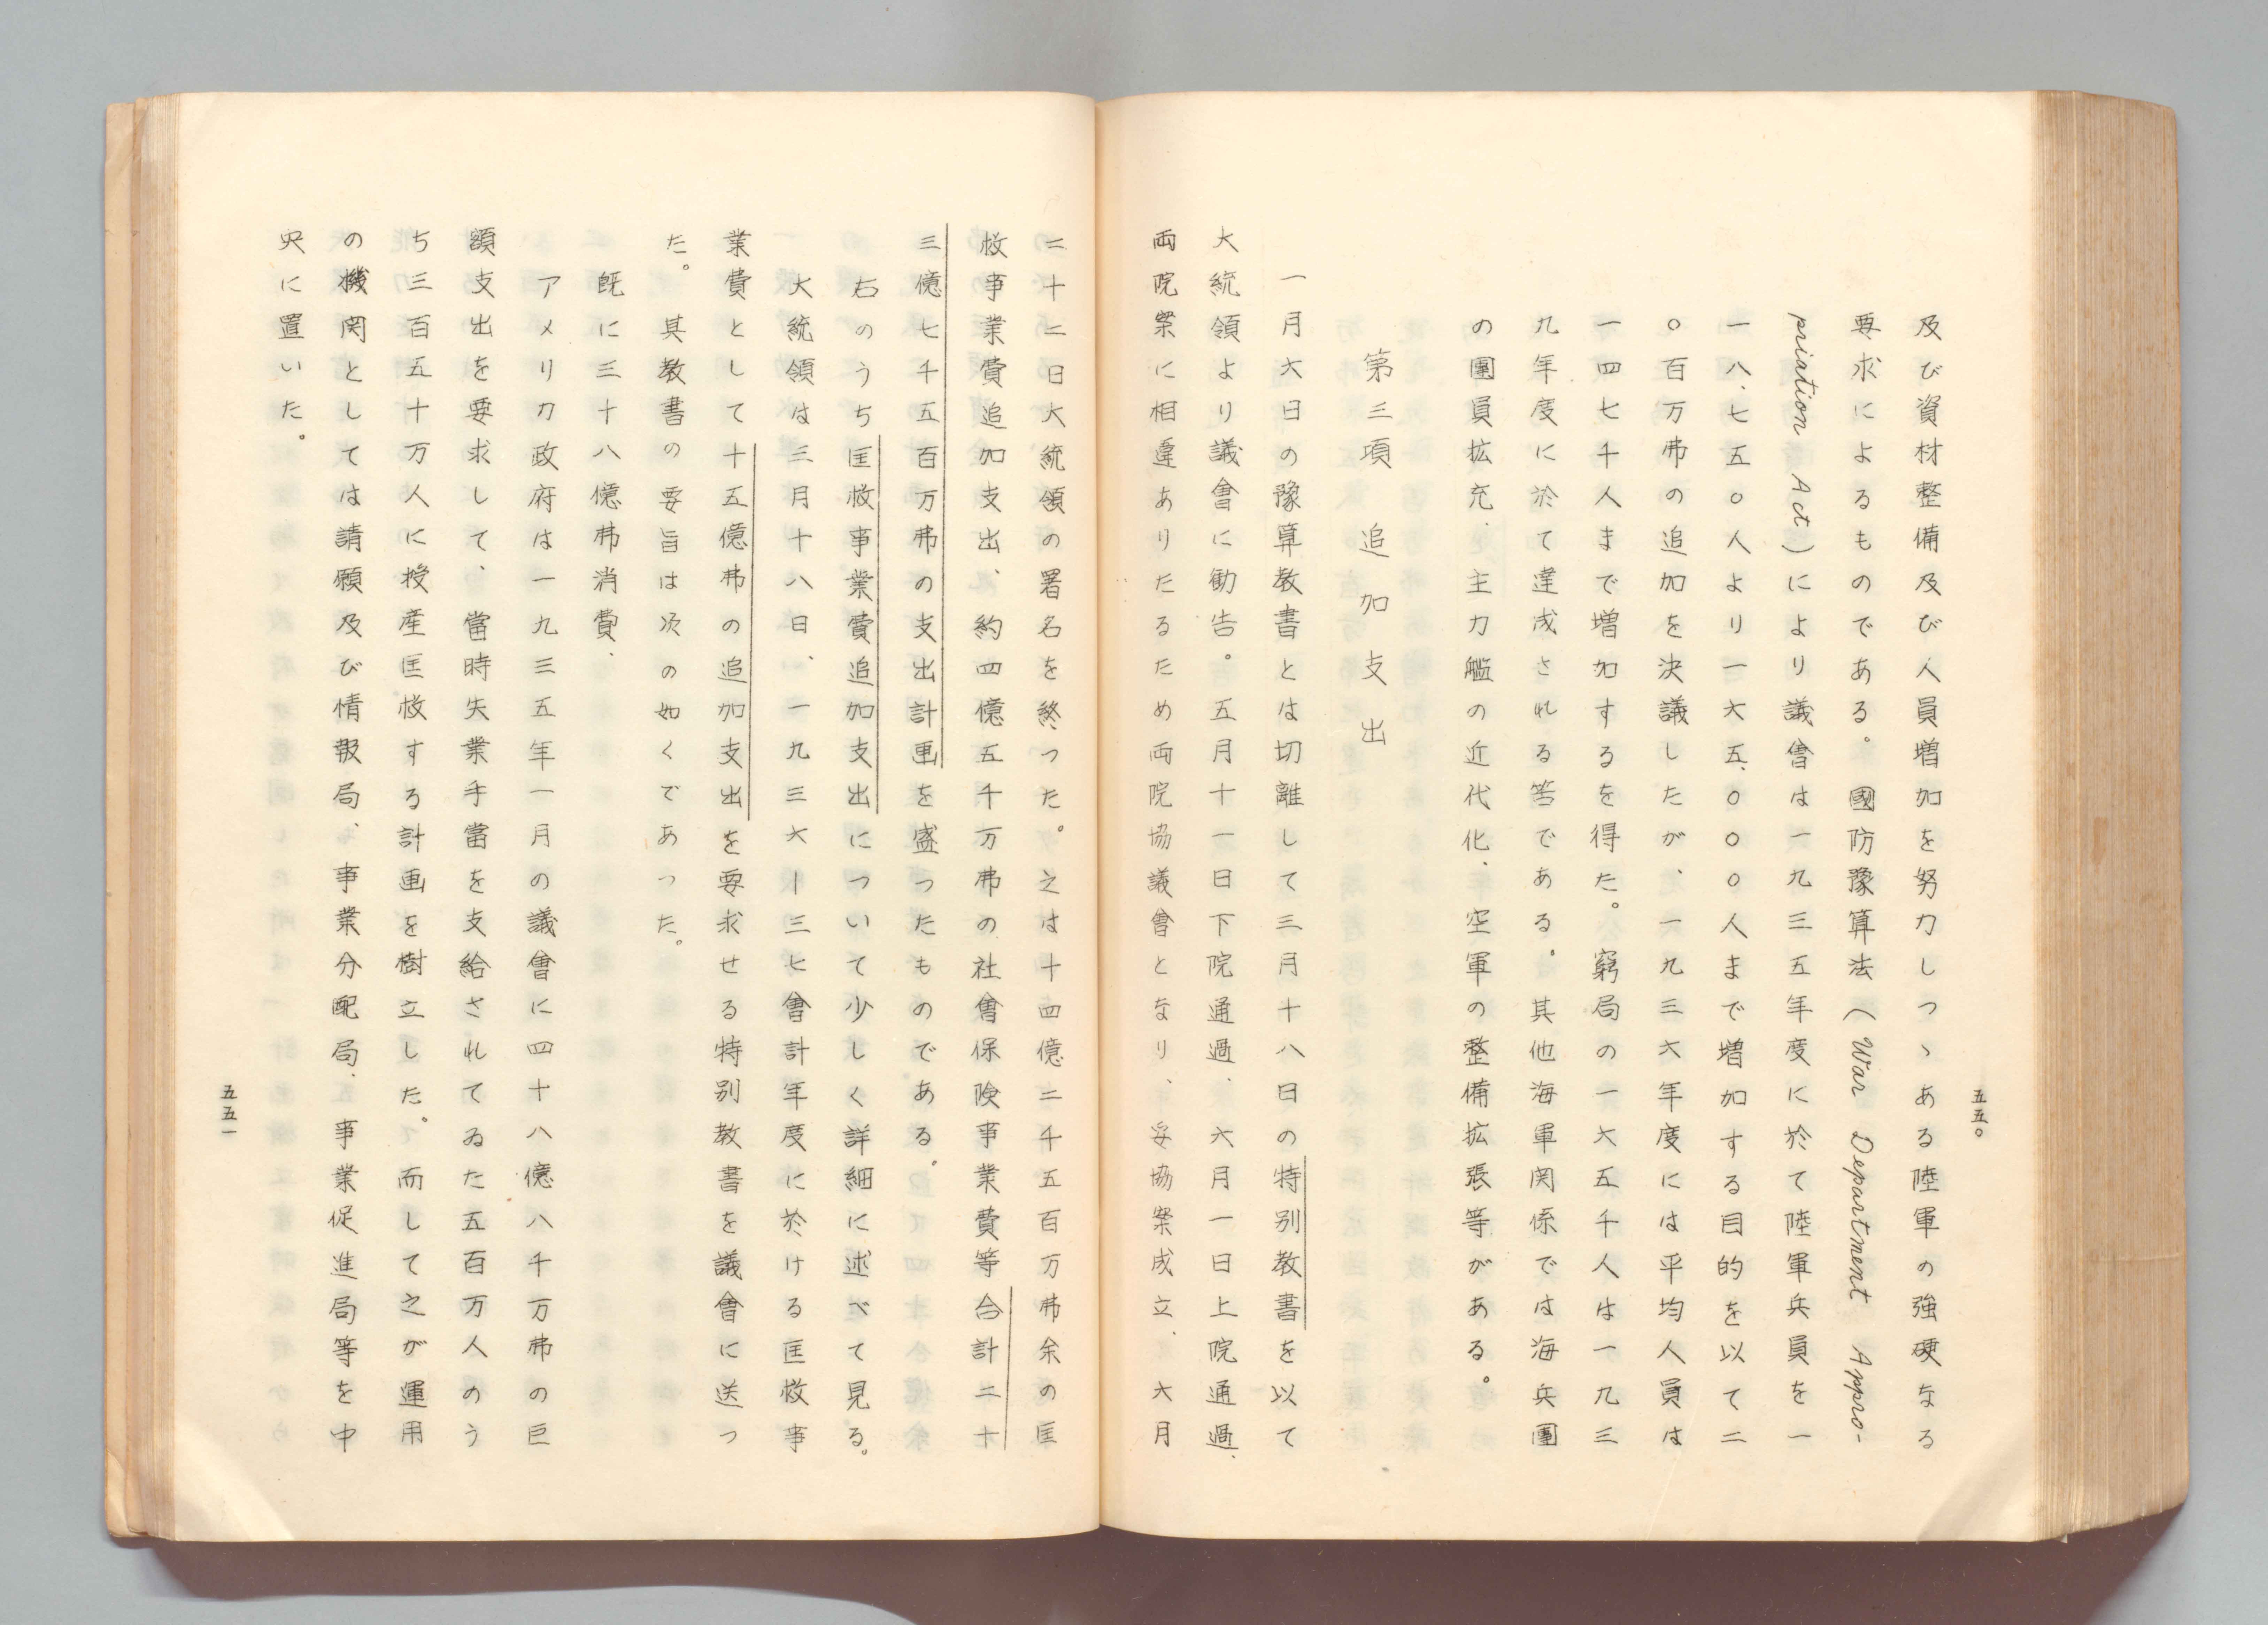 五五〇
及び資材整備及び人員増加を努力しつゝある陸軍の強硬なる
要求によるものである。國防豫算法（War Department Appro-
priation Act）により議會は一九三五年度に於て陸軍兵員を一
一八、七五〇人より一六五、〇〇〇人まで増加する目的を以て二
〇百万弗の追加を決議したが、一九三六年度には平均人員は
一四七千人まで増加するを得た。窮局の一六五千人は一九三
九年度に於て達成される筈である。其他海軍関係では海兵團
の團員拡充、主力艦の近代化、空軍の整備拡張等がある。
第三項　追加支出
一月六日の豫算教書とは切離して三月十八日の特別教書を以て
大統領より議會に勧告。五月十一日下院通過、六月一日上院通過、
両院案に相違ありたるため両院協議會となり、妥協案成立、六月
二十二日大統領の署名を終つた。之は十四億二千五百万弗余の匡
救事業費追加支出、約四億五千万弗の社會保険事業費等合計二十
三億七千五百万弗の支出計画を盛つたものである。
右のうち匡救事業費追加支出について少しく詳細に述べて見る。
大統領は三月十八日、一九三六ー三七會計年度に於ける匡救事
業費として十五億弗の追加支出を要求せる特別教書を議會に送つ
た。其教書の要旨は次の如くであつた。
既に三十八億弗消費、
アメリカ政府は一九三五年一月の議會に四十八億八千万弗の巨
額支出を要求して、當時失業手當を支給されてゐた五百万人のう
ち三百五十万人に授産匡救する計画を樹立した。而して之が運用
の機関としては請願及び情報局、事業分配局、事業促進局等を中
央に置いた。
五五一